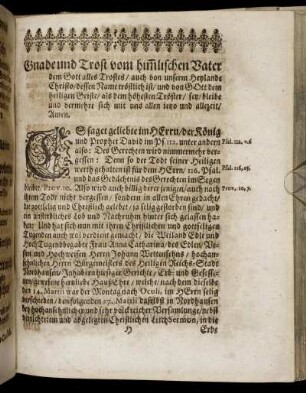 Gnade und Trost vom him̃lischen Vater
dem Gott alles Trostes/ auch von unserm Heylande
Christo/ dessen Name tröstlich ist/ und von GOtt dem
heiligen Geiste/ als dem höhesten Tröster/ sey/ bleibe
und vermehre sich mit uns allen itzo und allezeit/
Amen.
ES saget geliebte im HErrn/ der König
und Prophet David im Ps. 112. unter andern Psal. 112. v. 6
also: Des Gerechten wird nimmermehr ver-
gessen: Denn so der Todt seiner Heiligen
werth gehalten ist für dem HErrn/ 116. Psal. Psal. 116, 15.
und das Gedächtniß des Gerechten im Segen
bleibet/ Prov. 10. Also wird auch billig derer jenigen/ auch nach Prov. 10, 7.
ihrem Tode nicht vergessen/ sondern in allen Ehren gedacht/
so Gottselig und Christlich gelebet/ ja selig gestorben sind/ und
ein unsterbliches Lob und Nachruhm hinter sich gelassen ha-
ben: Und hat sich nun mit ihren Christlichen und gottseligen
Tugenden auch wol verdient gemacht/ die Weiland Edle und
Hoch Tugendbegabte Frau Anna Catharina/ des Edlen/ Ve-
sten und Hochweisen Herrn Johann
ansehnlichen Herrn Bürgermeisters des Heiligen Reichs-Stadt
Nordhausen/
herzliebe Haußehre/ welche/ nach dem dieselbe
den 14. Martii war der Montag nach Oculi, im HErrn selig
verschieden/ den folgenden 17. Martii daselbst in Nordhausen
bey hochansehnlich und sehr volckreicher Versamlunge/ nebst
verrichteten und abgelegten Christlichen Leich-Sermon, in die
H Erde